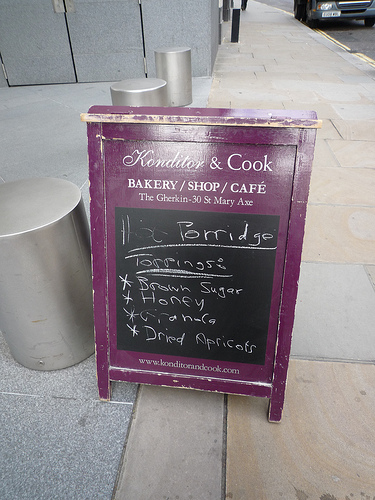 Konditor & Cook
BAKERY / SHOP / CAFÉ
The Gherkin-30 St Mary Axe
Porridge
Toppings:
* Brown Sugar
* Honey
* Granola
* Dried Apricots
www.konditorandcook.com